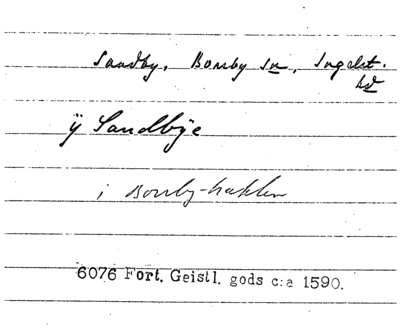 Sandby, Borrby sn, Ingelst. hd
ÿ Sandbÿe
i Borrby-hakken
6076 Fort. Geistl. gods c:a 1590.